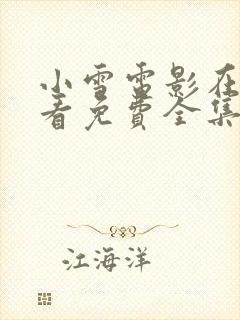 小雪雷影在
看免费全集
江海洋